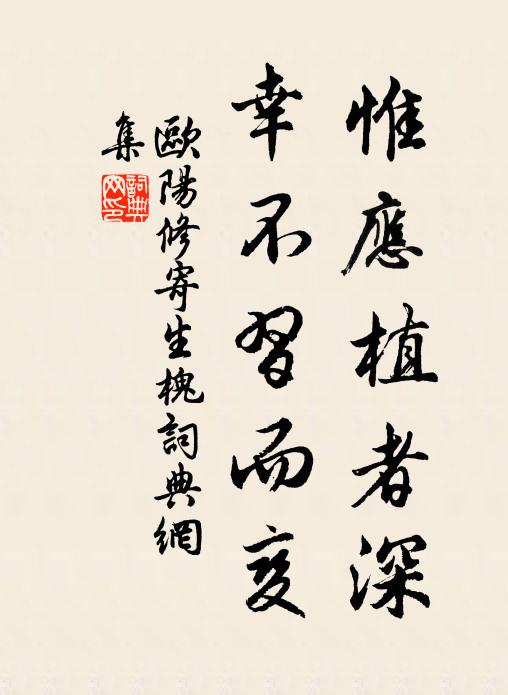 惟應植者深
幸不習而變
歐陽修寄生槐詞典網
集
詞典
網印